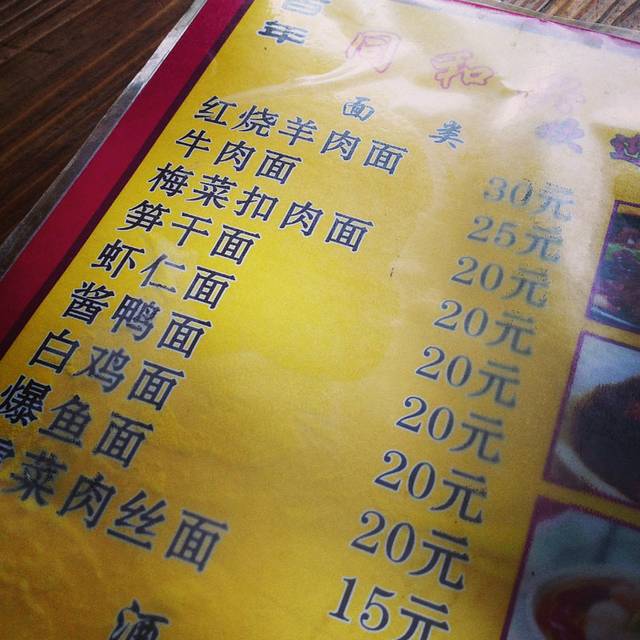 百年 同和
面类 欢迎
红烧羊肉面 30元
牛肉面 25元
梅菜扣肉面 20元
笋干面 20元
虾仁面 20元
酱鸭面 20元
白鸡面 20元
爆鱼面 20元
菜肉丝面 15元
酒